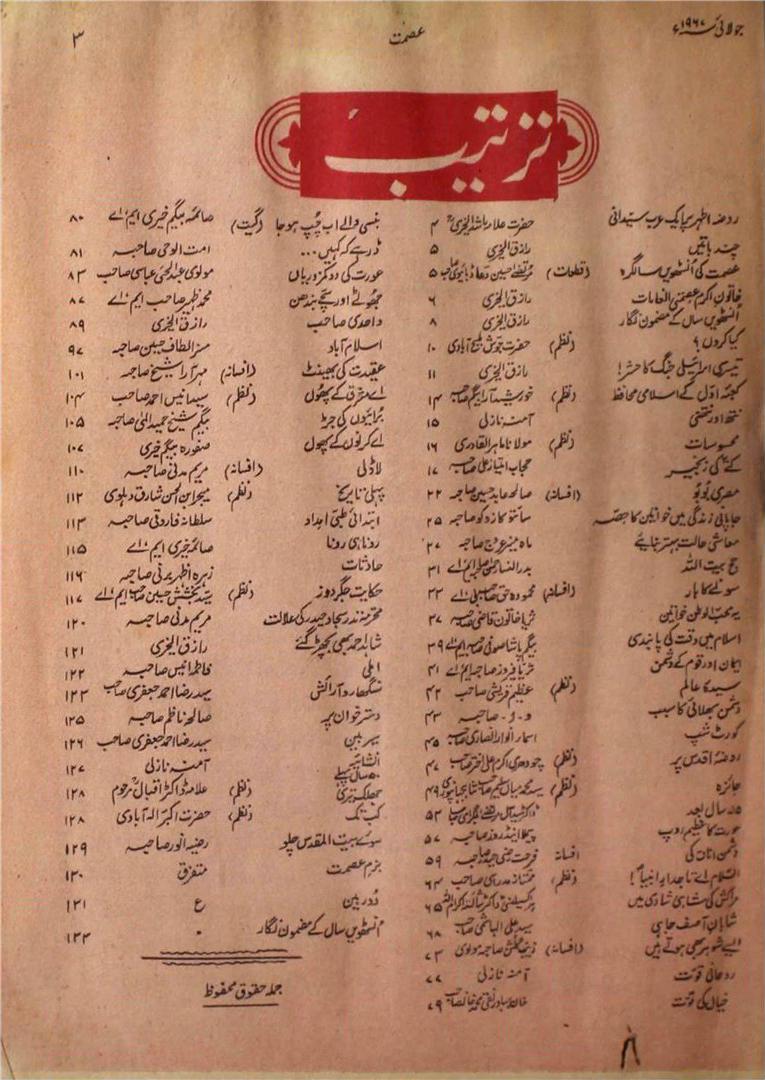 جولائی سنہ ۱۹۶۷ء
عصمت
۳
ترتیب
روضہ اطہر پر ایک عرب سیدانی حضرت علامہ راشد الخیریؒ ۴
چند باتیں رازق الخیری ۵
عصمت کی اُنسٹھویں سالگرہ (قطعات) ۵
خاتون اکرم عصمتی انعامات رازق الخیری ۶
اُنسٹھویں سال کے مضمون نگار رازق الخیری ۸
کیا کروں؟ (نظم) حضرت جوش ملیح آبادی ۱۰
تیسری اسرائیلی جنگ کا حشر! رازق الخیری ۱۱
کعبۂ اوّل کے اسلامی محافظ (نظم) خورشید آرا بیگم صاحبہ ۱۴
ننھا اور ننھی آمنہ نازلی ۱۵
محسوسات (نظم) مولانا ماہر القادری ۱۶
کے کی زنجیر حجاب امتیاز علی صاحبہ ۱۷
مصری بُوبُو (افسانہ) صالحہ عابد حسین صاحبہ ۲۲
جاپانی زندگی میں خواتین کا حصہ صاحبہ ۲۵
معاشی حالت بہتر بنایئے صاحبہ ۲۷
حج بیت اللہ ۳۱
سونے کا ہار (افسانہ) ۳۳
یہ محب الوطن خواتین ثریا خاتون صاحبہ ۳۷
اسلام میں وقت کی پابندی بیگم پاشا صوفی صاحبہ ایم اے ۳۹
ایمان اور قوم کے دشمن ثریا فیروز صاحبہ ایم اے ۴۱
سید کا عالم (نظم) عظیم قریشی صاحب ۴۲
دشمن بھلائی کا سبب و۔ ز۔ صاحبہ ۴۳
کورٹ شپ اسرار انوار انصاری صاحب ۴۵
روضۂ اقدس پر (نظم) چودھری اکرم علی اختر صاحب ۴۷
جائزہ (نظم) ۴۹
۵۵ سال بعد ۵۳
عورت کا عظیم روپ صاحبہ ۵۷
دشمن انات کی افسانہ صاحبہ ۵۹
السّلام اے تاجدارِ انبیاؐ! (نظم) ممتاز مدراسی صاحب ۶۴
مراکش کی شاہی شادی میں ۶۵
شاہانِ آصف جاہی سید علی الہاشمی صاحب ۶۸
ایسے شوہر بھی ہوتے ہیں (افسانہ) صاحبہ مولوی ۷۳
روحانی قوت آمنہ نازلی ۷۷
خیال کی قوت خان بہادر نقی محمد خاں صاحب ۷۹
بنسی والے اب چُپ ہو جا (گیت) صائمہ بیگم خیری ایم اے ۸۰
ڈر ہے کہ کہیں... امت الوحی صاحبہ ۸۱
عورت کی دو کمزوریاں مولوی عبدالحئی عباسی صاحب ۸۳
جھوٹے اور سچے بندھن محمد ظہیر صاحب ایم اے ۸۷
واحدی صاحب رازق الخیری ۸۹
اسلام آباد مسز الطاف حسین صاحبہ ۹۷
عقیدت کی بھینٹ (افسانہ) مہر آرا شیخ صاحبہ ۱۰۱
اے مشرق کے پھول (نظم) سیماب انیس احمد صاحب ۱۰۴
برائیوں کی جڑ بیگم شیخ حمید الٰہی صاحبہ ۱۰۵
اے کرنوں کے پھول صفورہ بیگم خیری ۱۰۷
لاڈلی (افسانہ) مریم مدنی صاحبہ ۱۱۰
پہلی تاریخ (نظم) میجر ابن الحسن شارق دہلوی ۱۱۲
ابتدائی طبّی امداد سلطانہ فاروقی صاحبہ ۱۱۳
رونا ہی رونا صائمہ خیری ایم اے ۱۱۵
حادثات زہرہ اظہر برنی صاحبہ ۱۱۶
حکایت جگر دوز (نظم) سید بخشش حسین صاحب ایم اے ۱۱۷
محترمہ نذر سجاد حیدر کی علالت مریم مدنی صاحبہ ۱۲۰
شاہد احمد بھی بچھڑ گئے رازق الخیری ۱۲۱
املی فاطمہ انیس صاحبہ ۱۲۲
سنگھار و آرائش سید رضا احمد جعفری صاحب ۱۲۳
دسترخوان پر صالحہ ناظم صاحبہ ۱۲۵
سیر بین سید رضا احمد جعفری صاحب ۱۲۶
انشائیہ آمنہ نازلی ۱۲۷
۵۰ سال پہلے
جھلک تیری (نظم) علامہ ڈاکٹر اقبالؒ مرحوم ۱۲۸
کب تک (نظم) حضرت اکبر الہ آبادی ۱۲۸
سوئے بیت المقدس چلو رضیہ انور صاحبہ ۱۲۹
بزم عصمت متفرق ۱۳۰
دُوربین ع ۱۳۱
اُنسٹھویں سال کے مضمون نگار ۰ ۱۳۴
جملہ حقوق محفوظ